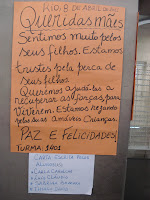 RIO, 8 DE ABRIL DE 2011
Queridas mães
Sentimos muito pelos
seus filhos. Estamos
tristes pela perca de
seus filhos
Queremos ajuda-las a
recuperar as forças para
Viverem. Estamos rezando
pelas suas amáveis crianças.
PAZ E FELICIDADES!
TURMA: 1001
CARTA ESCRITA PELOS
ALUNOS: